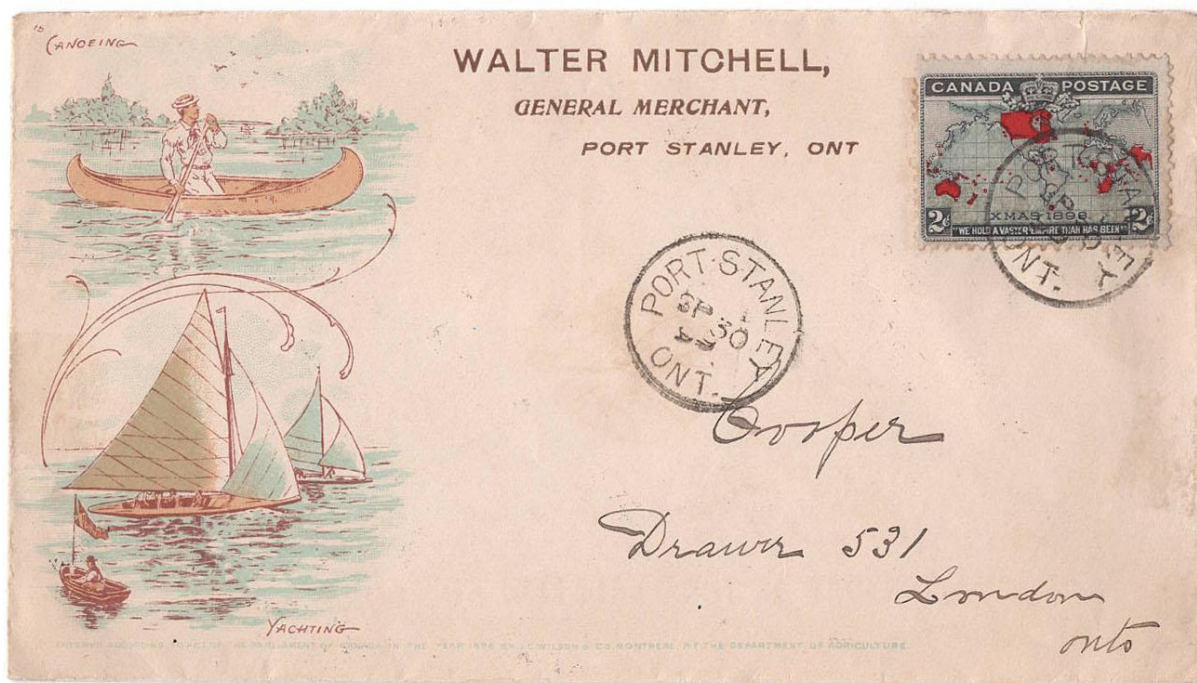 CANOEING
WALTER MITCHELL,
GENERAL MERCHANT,
PORT STANLEY, ONT
CANADA POSTAGE
XMAS 1898
2¢ 2¢
"WE HOLD A VASTER EMPIRE THAN HAS BEEN"
PORT STANLEY
ONT.
PORT STANLEY
SP 30
ONT.
Cooper
Drawer 531
London
Onto
YACHTING
ENTERED ACCORDING TO ACT OF THE PARLIAMENT OF CANADA IN THE YEAR BY J.C. WILSON & CO MONTREAL AT THE DEPARTMENT OF AGRICULTURE